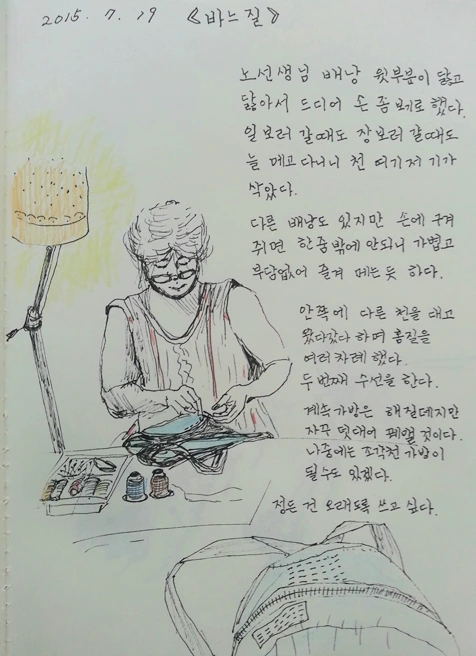 2015. 7. 19 《바느질》
노선생님 배낭 윗부분이 닳고
닳아서 드디어 손 좀 보기로 했다.
일 보러 갈 때도 장 보러 갈 때도
늘 메고 다니니 천 여기저기가
삭았다.
다른 배낭도 있지만 손에 구겨
쥐면 한 줌 밖에 안되니 가볍고
부담없어 즐겨 메는 듯 하다.
안쪽에 다른 천을 대고
왔다갔다 하며 홈질을
여러차례 했다.
두번째 수선을 한다.
계속 가방은 해질테지만
자꾸 덧대어 꿰맬 것이다.
나중에는 조각천 가방이
될 수도 있겠다.
정든 건 오래도록 쓰고 싶다.